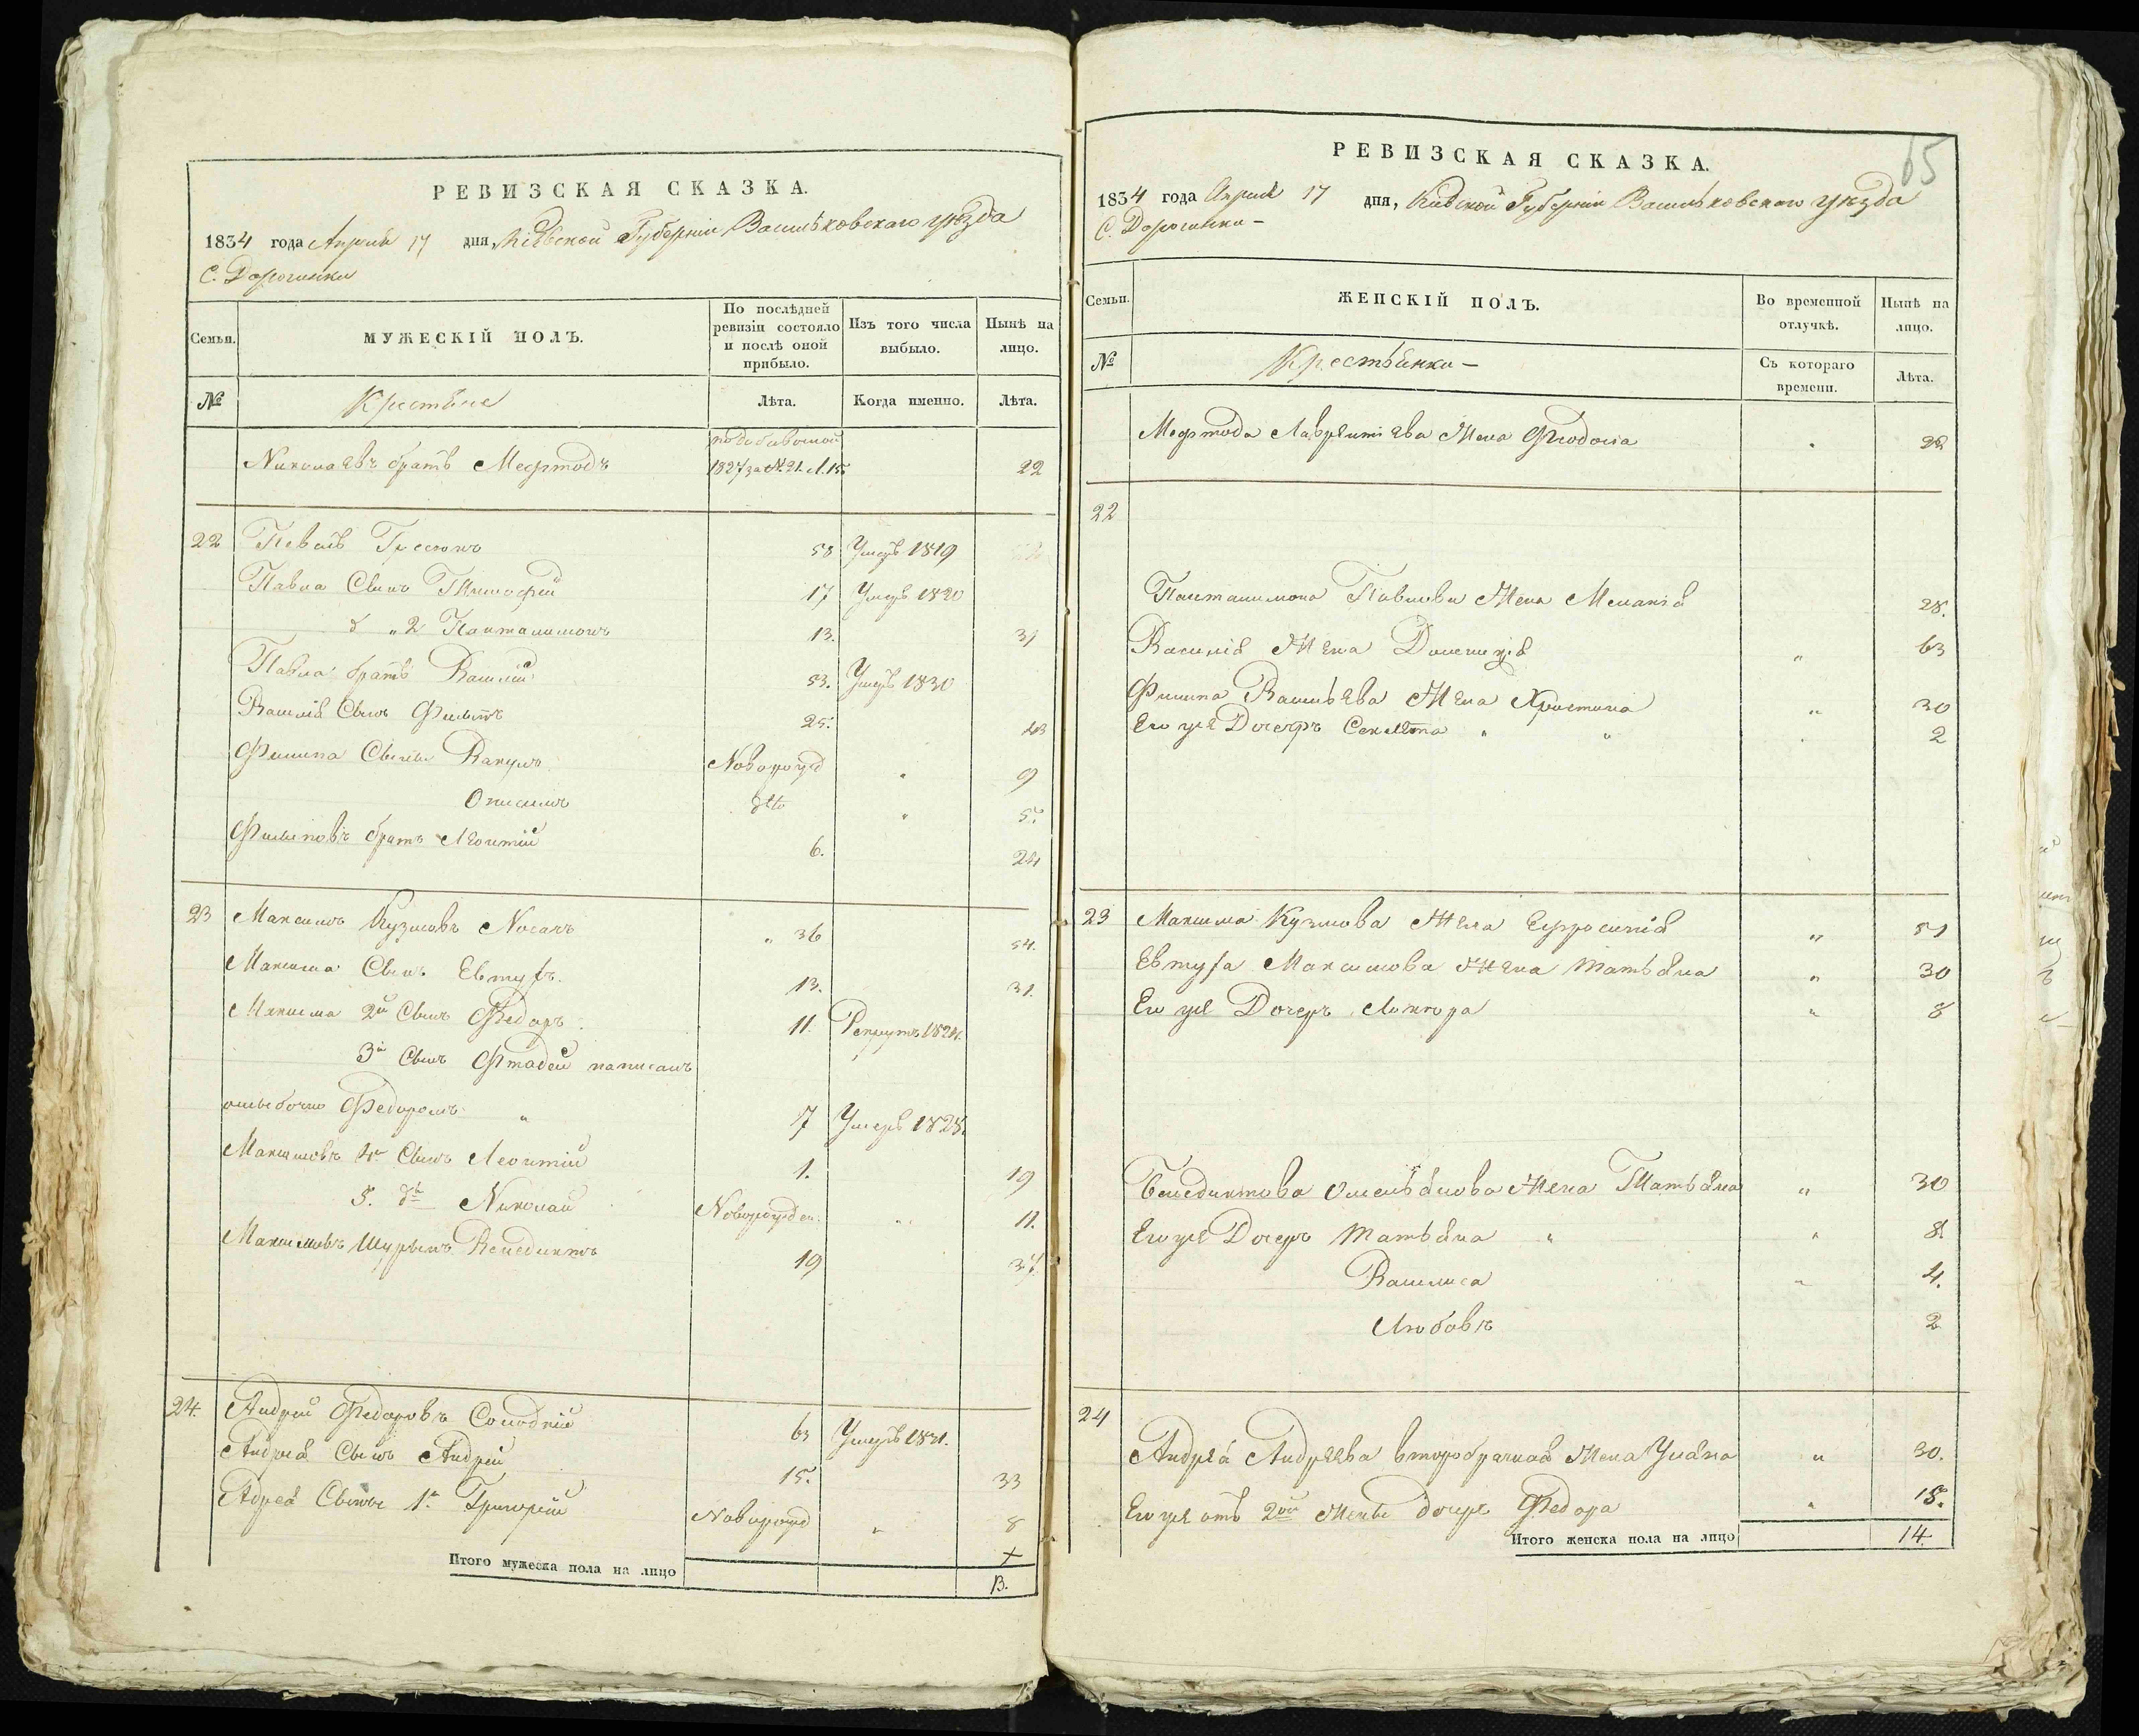 РЕВИЗСКАЯ СКАЗКА.
1834 года Апреля 17 дня, Кіевской Губерніи Васильковскаго уѣзда
С. Дорогинки
Семьи.
МУЖЕСКІЙ ПОЛЪ.
По послѣдней ревизіи состояло и послѣ оной прибыло.
Изъ того числа выбыло.
Нынѣ на лицо.
№
Крестьяне
Лѣта.
Когда именно.
Лѣта.
Николаевъ братъ Мефтодъ 1827 за № 21. л. 15 22
22 Павелъ 58 Умеръ 1819
Павла Сынъ Тимофей 17 Умеръ 1820
д „ 2 Панталимонъ 13. 31
Павла братъ Василій 53. Умеръ 1830
Василія Сынъ Филипъ 25. 43
Филипа Сыны Вакумъ Новорожд „ 9
Онисимъ „ 5.
Филиповъ братъ Леонтій 6. 24
23 Максимъ Кузмовъ Носакъ „ 36 54.
Максима Сынъ Евтухъ. 13. 31.
Максима 2й Сынъ Федоръ. 11. Рекрутъ 1824.
3й Сынъ Фтадей написанъ
ошыбочно Федоромъ „ 7 Умеръ 1828.
Максимовъ 4й Сынъ Леонтій 1. 19
5. Николай Новорожден. „ 11.
Максимовъ Шурынъ Венедиктъ 19 37.
24. Андрей Федоровъ Солодкій 63 Умеръ 1831.
Андрея Сынъ Андрей 15. 33
Адрея Сыны 1й Григорій Новорожд „ 8
Итого мужеска пола на лицо 13.
65
РЕВИЗСКАЯ СКАЗКА.
1834 года Апреля 17 дня, Кіевской Губерніи Васильковскаго уѣзда
С. Дорогинки -
Семьи.
ЖЕНСКІЙ ПОЛЪ.
Во временной отлучкѣ.
Нынѣ на лицо.
№
Крестьянки -
Съ котораго времени.
Лѣта.
Мефтода Лаврентіева Жена Феодосіа „ 22
22
Панталимона Павлова Жена Меланія 28.
Василія Жена Доменизія „ 63
Филипа Васильева Жена Христина „ 30
Его же Дочеръ Секлета „ „ 2
23 Максима Кузмова Жена Ефросинія „ 51
Евтуха Максимова Жена Татьяна „ 30
Его же Дочеръ „ 8
Бенедиктова Омельянова Жена Татьяна „ 30
Его же Дочеръ Татьяна „ „ 8
Василиса „ 4.
Любовъ 2
24
Андрея Андреева второбрачная Жена Уляна „ 30.
Его же отъ 2ой Жены дочерь Федора „ 15.
Итого женска пола на лицо 14